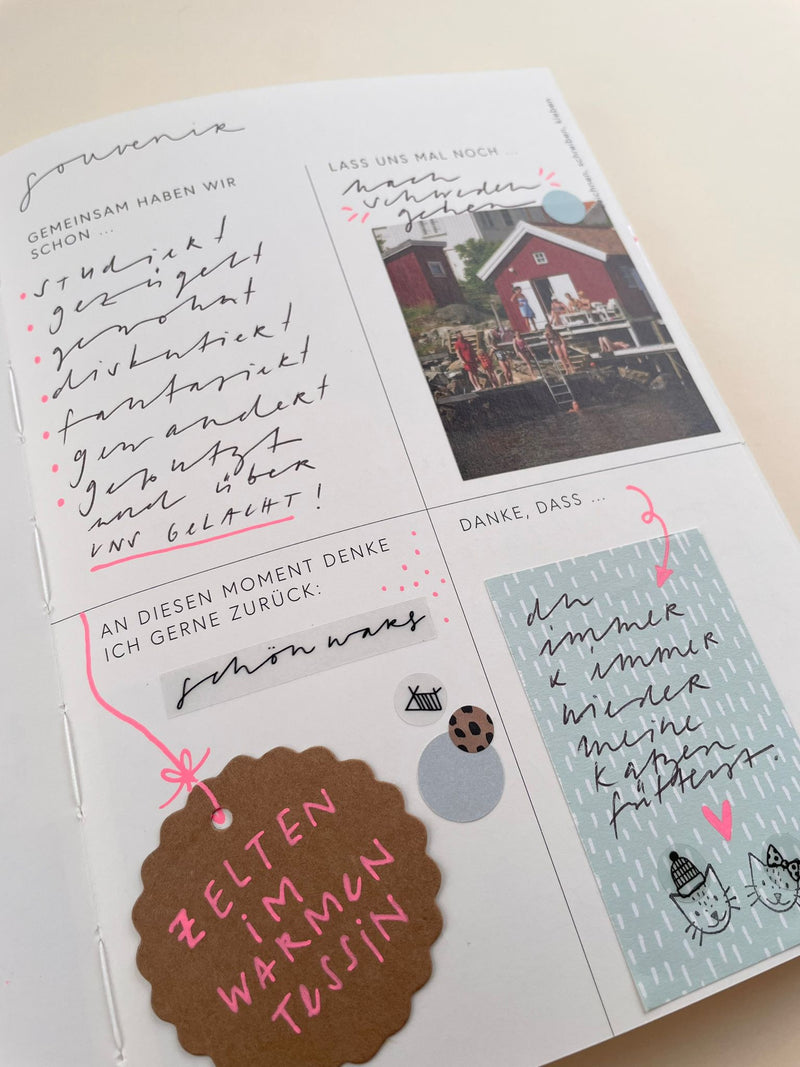 souvenir
GEMEINSAM HABEN WIR
SCHON ...
studiert
gezügelt
gewohnt
diskutiert
fantasiert
gewandert
geputzt
und über
UNS GELACHT!
LASS UNS MAL NOCH ...
nach
schweden
gehen
schreiben, kleben
AN DIESEN MOMENT DENKE
ICH GERNE ZURÜCK:
schön wars
ZELTEN
IM
WARMEN
TESSIN
DANKE, DASS ...
du
immer
& immer
wieder
meine
katzen
fütterst.